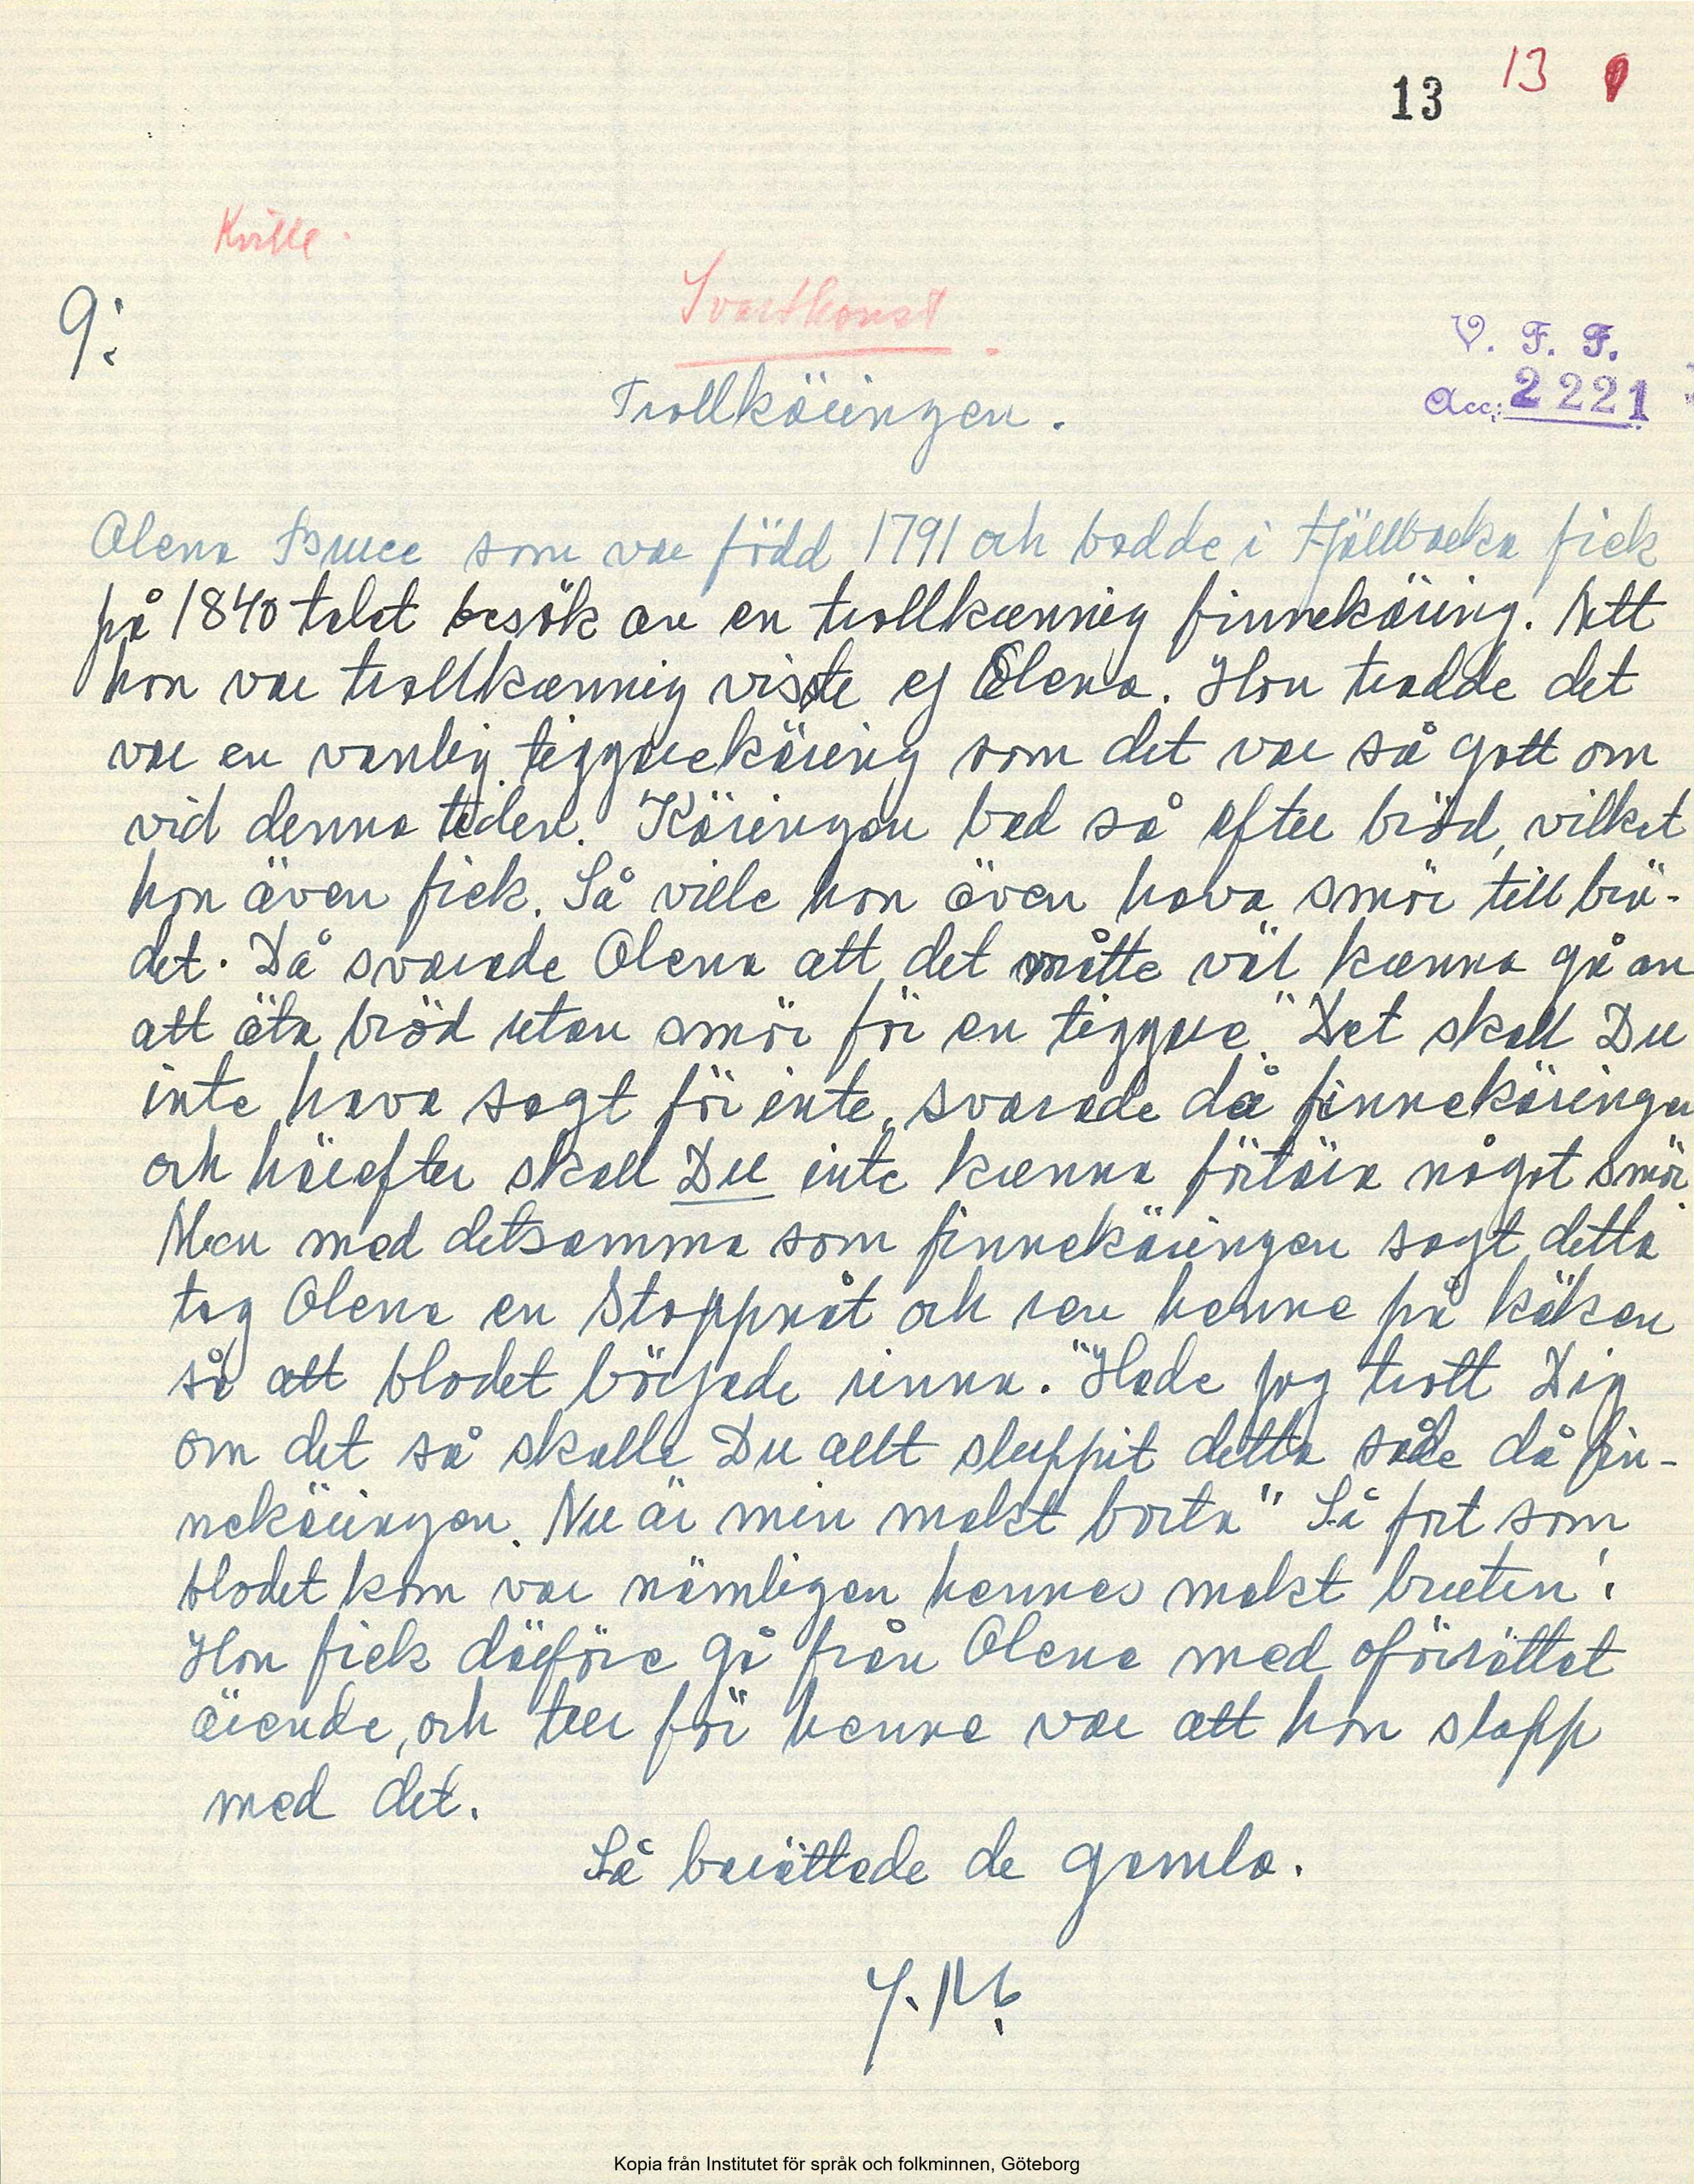 13 13
Kville.
Svartkonst.
9:
V. F. F.
Acc: 2221
Trollkäringen.
Olena Bruce som var född 1791 och bodde i Fjällbacka fick
på 1840 talet besök av en trollkunnig finnekäring. Att
hon var trollkunnig visste ej Olena. Hon trodde det
var en vanlig tiggarekäring som det var så gott om
vid denna tiden. Käringen bad så efter bröd, vilket
hon även fick. Så ville hon även hava smör till brö-
det. Då svarade Olena att det måtte väl kunna gå an
att äta bröd utan smör för en tiggare. "Det skall Du
inte hava sagt för inte" svarade då finnekäringen
och härefter skall Du inte kunna förtära något smör.
Men med detsamma som finnekäringen sagt detta
tog Olena en Stoppnåt och rev henne på käken
så att blodet började rinna. "Hade jag trott Dig
om det så skulle Du allt sluppit detta sade då fin-
nekäringen. Nu är min makt borta" Så fort som
blodet kom var nämligen hennes makt bruten!
Hon fick därföre gå från Olena med oförrättat
ärende, och tur för henne var att hon slapp
med det.
Så berättade de gamla.
Kopia från Institutet för språk och folkminnen, Göteborg